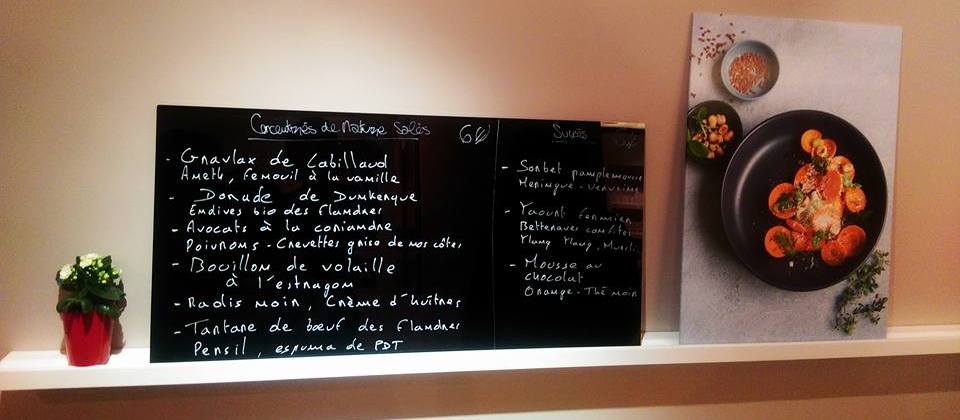 Concentrés de Nature Salés 6€
- Gravlax de Cabillaud
Aneth, fenouil à la vanille
- Dorade de Dunkerque
Endives bio des Flandres
- Avocats à la coriandre
Poivrons - Crevettes grise de nos côtes
- Bouillon de volaille
à l'estragon
- Radis noir, Crème d'huîtres
- Tartare de bœuf des Flandres
Persil, espuma de PDT
Sucrés
- Sorbet pamplemousse
Meringue - Verveine
- Yaourt fermier
Betteraves confites
Ylang Ylang, Muesli
- Mousse au
chocolat
Orange - Thé noir